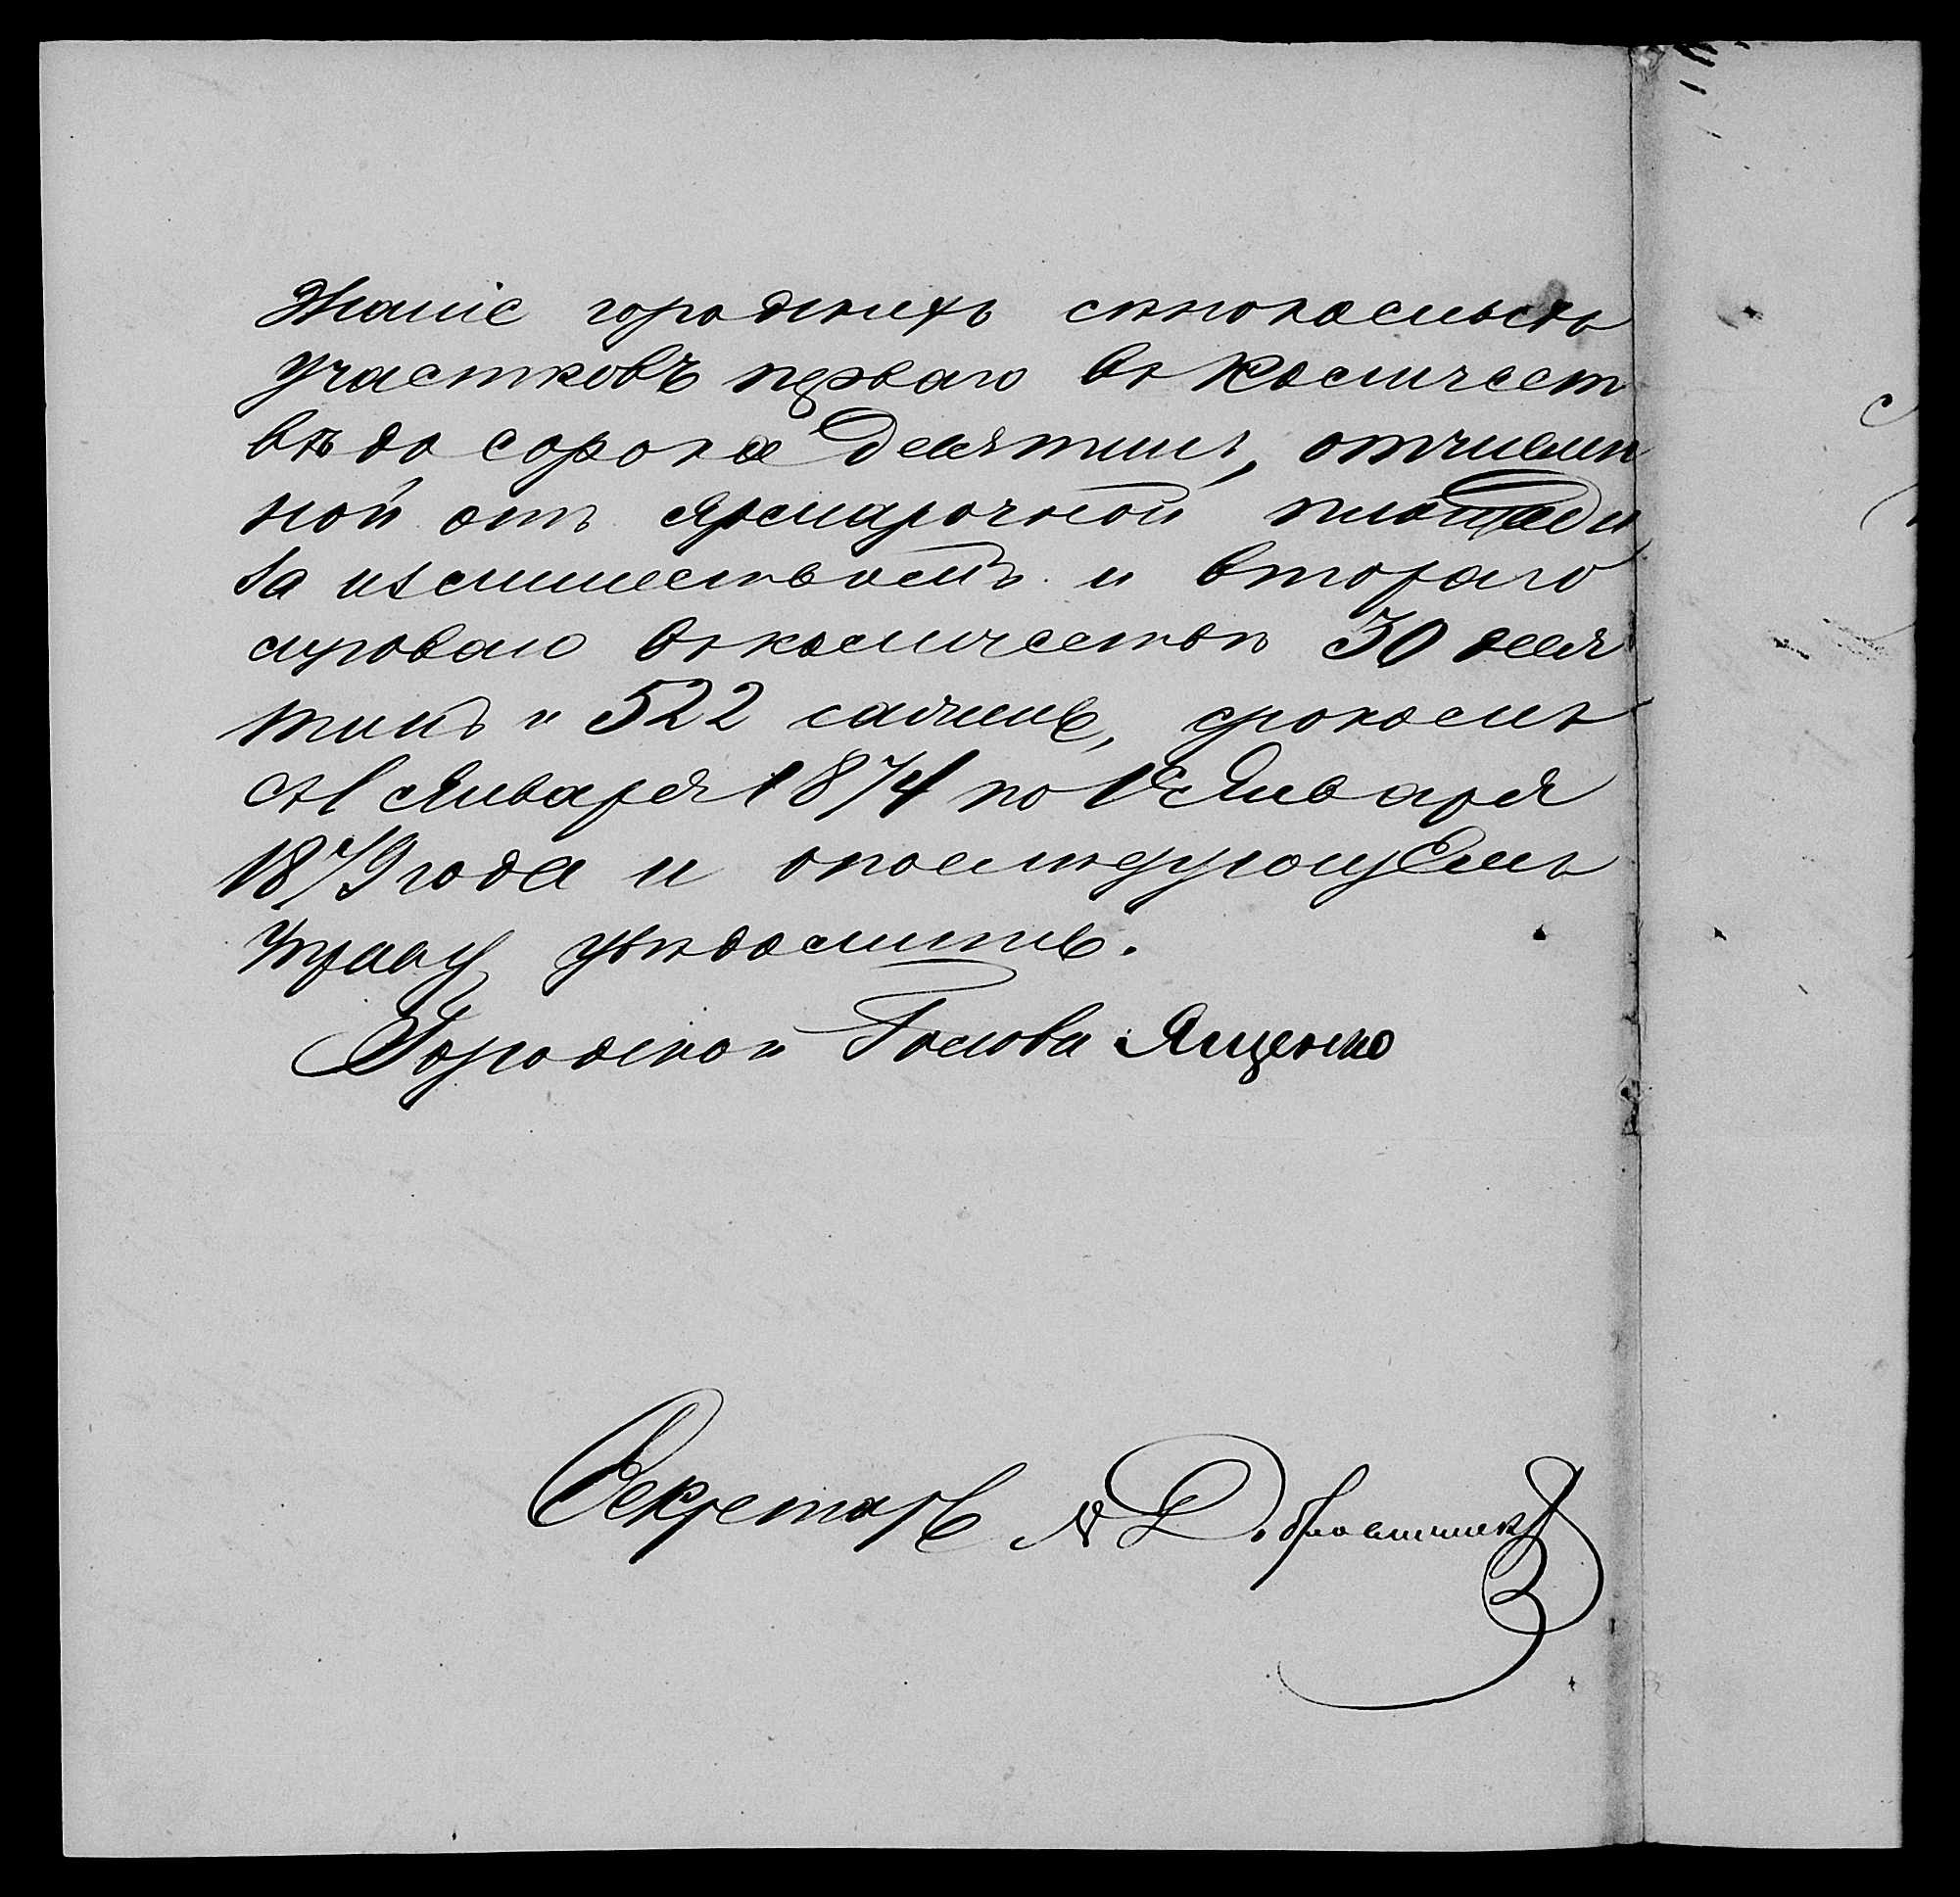 жаніе городскихъ сѣнокосныхъ
участковъ перваго въ количест
вѣ до сорока десятинъ, отчислен
ной отъ ярмарочной площади
за излишествомъ и втораго
въ количествѣ 30 деся
тинъ и 522 сажень, срокомъ
съ 1 Января 1874 по 1е Января
1879 года и опослѣдующемъ
Управу увѣдомить.
Городской Голова Ященко
Секретарь